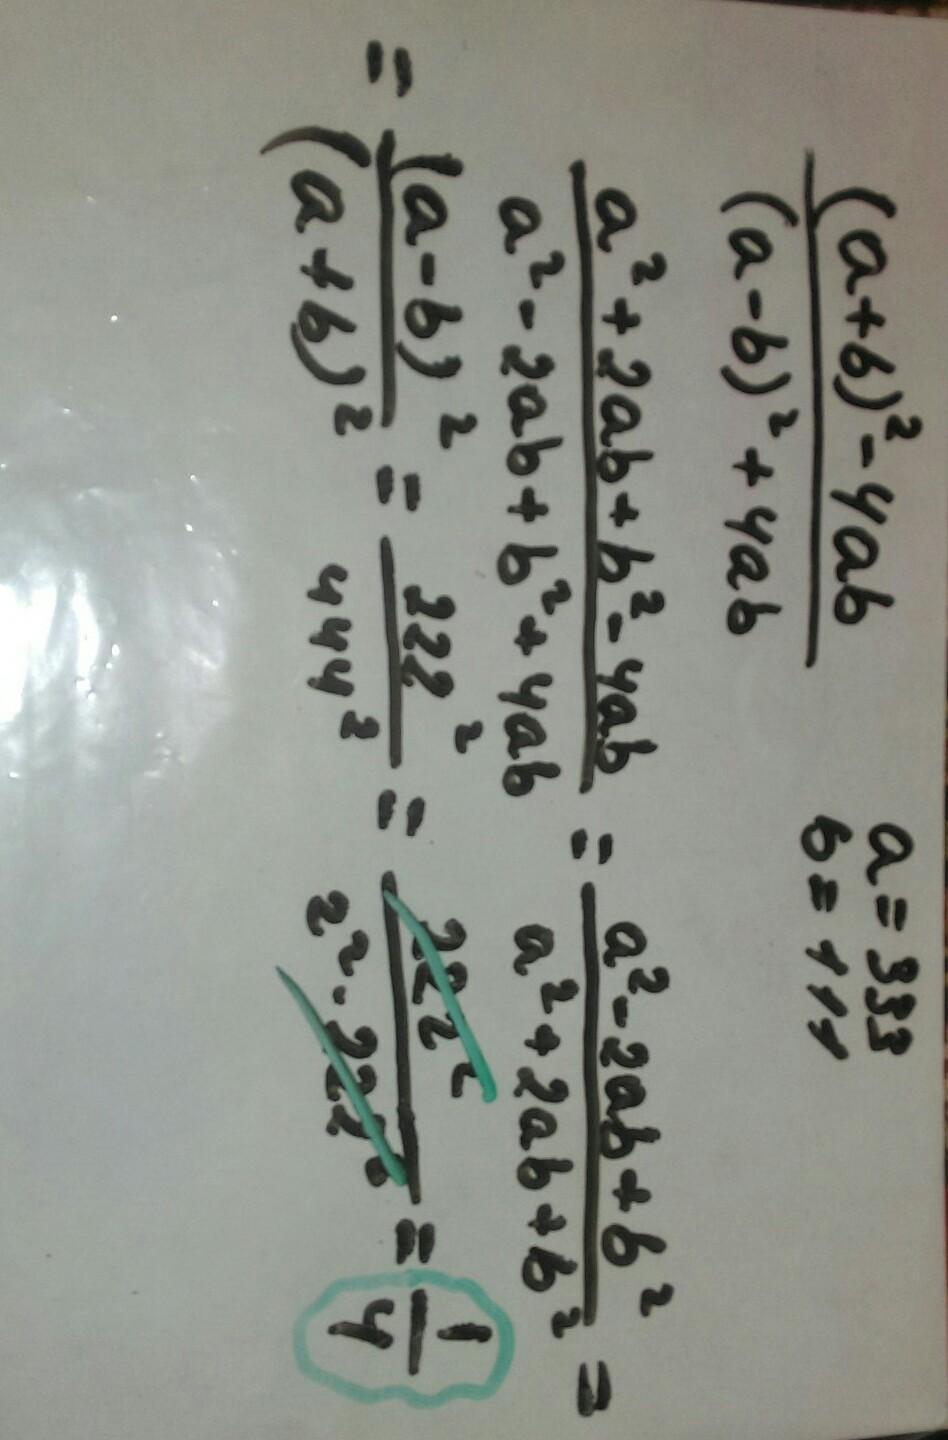 ((a+b)²-4ab)/((a-b)²+4ab) a=333
b=111
(a²+2ab+b²-4ab)/(a²-2ab+b²+4ab) = (a²-2ab+b²)/(a²+2ab+b²) =
= (a-b)²/(a+b)² = 222²/444² = 222²/(2²·222²) = 1/4